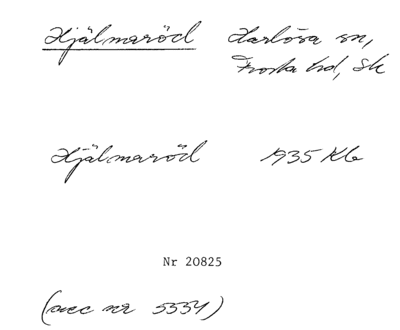 Hjälmaröd Harlösa sn,
Frosta hd, Sk
Hjälmaröd 1935 Kb
Nr 20825
(acc nr 5554)